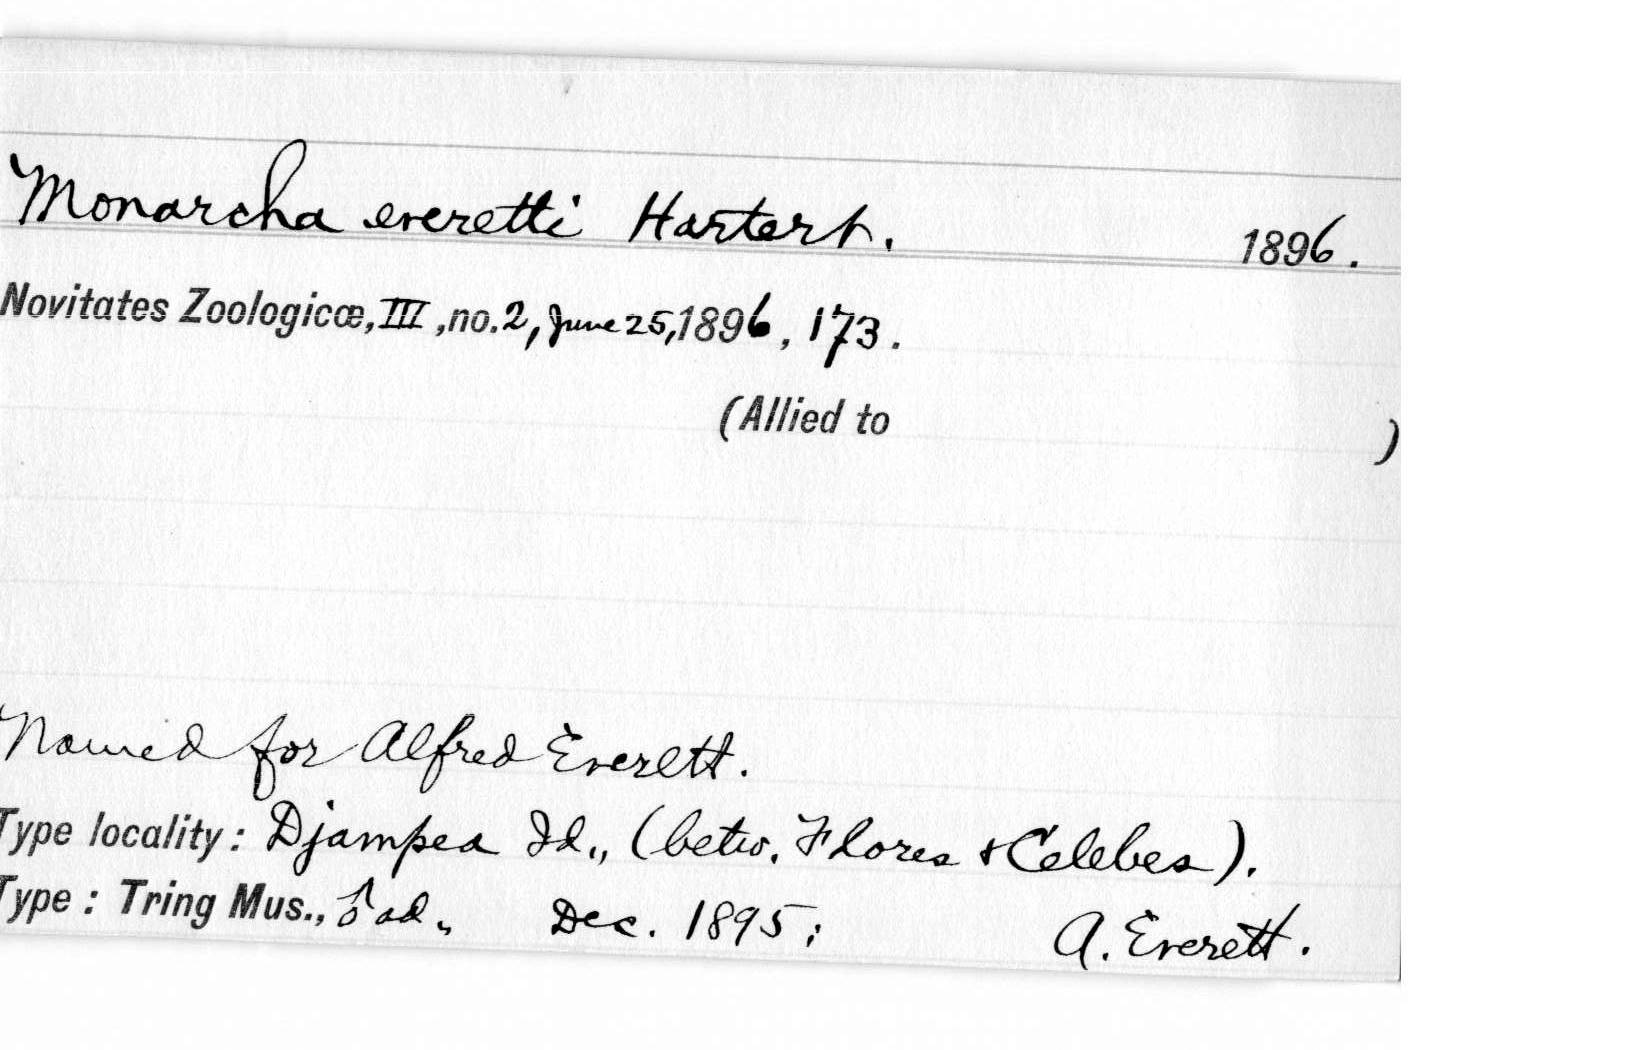 Monarcha everetti Hartert. 1896.
Novitates Zoologicæ, III, no. 2, June 25, 1896, 173.
(Allied to )
Named for Alfred Everett.
Type locality: Djampea Id., (betw. Flores & Celebes).
Type: Tring Mus., ♂ ad., Dec. 1895; A. Everett.